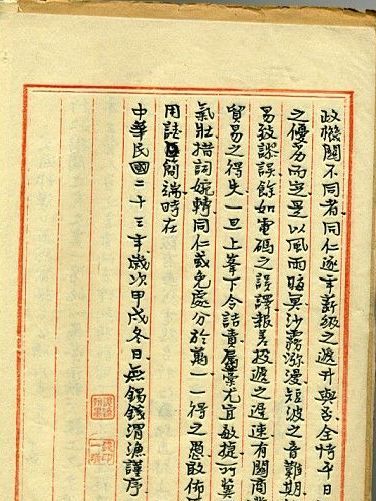 政機關不同者同仁逐年薪級之遞升與否全恃平日
之優劣而定是以風雨晦冥沙霧瀰漫短波之音難期
易致謬誤餘如電碼之誤譯報差投遞之遲速有關商
貿易之得失一旦上峯下令詰責屬稾尤宜敏捷可冀
氣壯措詞婉轉同仁或免處分於萬一一得之愚敢佈
用誌簡端時在
中華民國二十三年歲次甲戌冬日無錫錢渭漁謹序